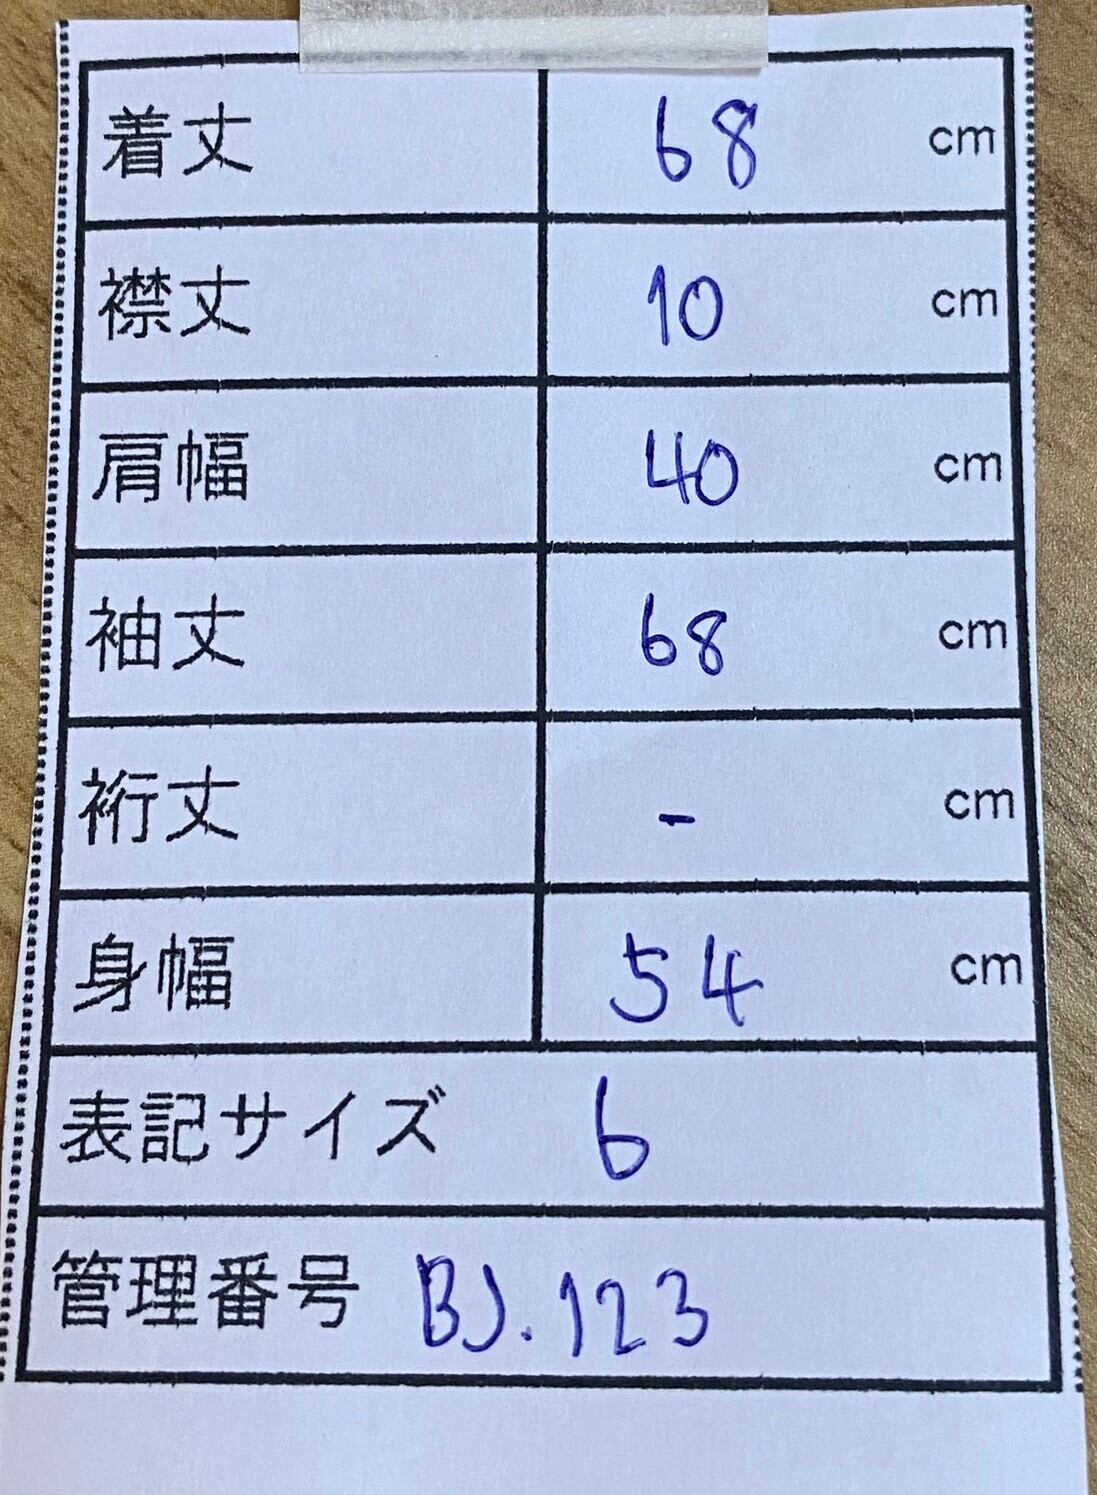 着丈 68 cm
襟丈 10 cm
肩幅 40 cm
袖丈 68 cm
裄丈 - cm
身幅 54 cm
表記サイズ 6
管理番号 BJ.123